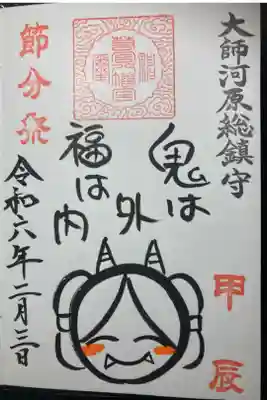 大師河原総鎮守
甲辰
鬼は
外
福は
内
節分祭
令和六年二月三日